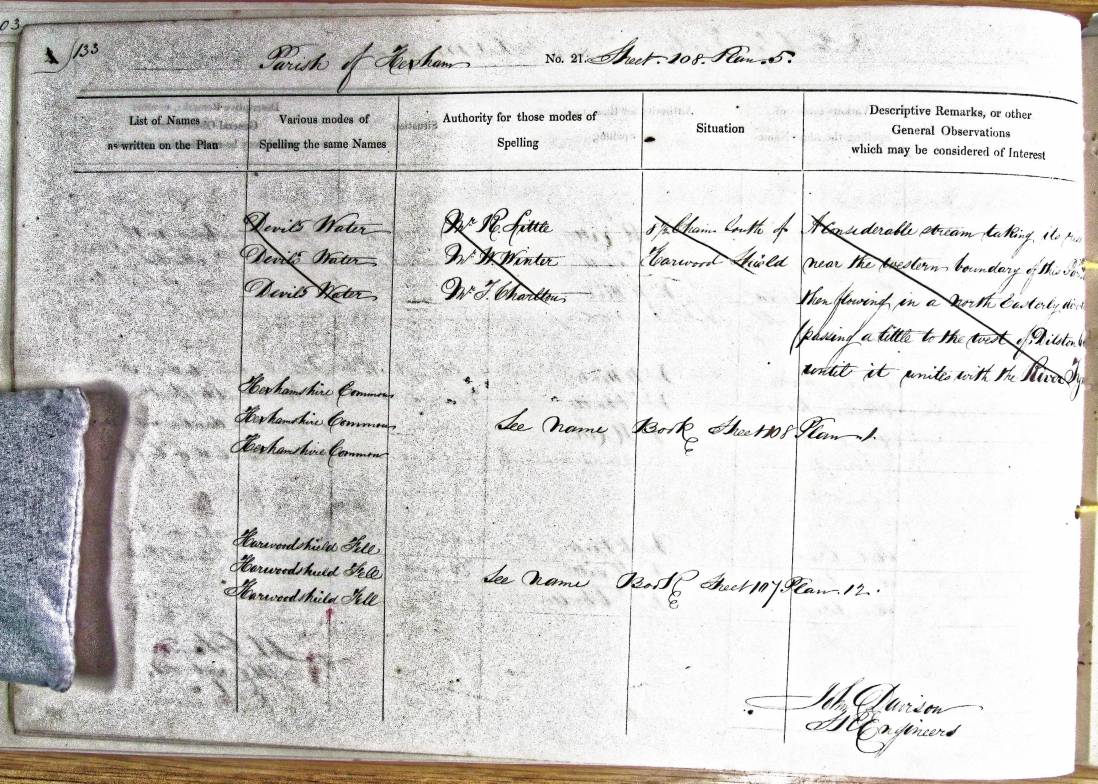 03
A 133
Parish of Hexham No. 21. Sheet. 108. Plan. 5.
List of Names as written on the Plan
Various modes of Spelling the same Names
Authority for those modes of Spelling
Situation
Descriptive Remarks, or other General Observations which may be considered of Interest
Devil's Water Mr. R. Little Chains South of A considerable stream taking its
Devil's Water Mr. W. Winter Harwood Shield near the western boundary of this
Devil's Water Mr. T. Charlton then flowing in a North Easterly
(passing a little to the west of Dilston
until it unites with the River
Hexhamshire Common
Hexhamshire Common See Name Book Sheet 108 Plan 1.
Hexhamshire Common
Harwoodshield Fell
Harwoodshield Fell See Name Book Sheet 107 Plan. 12.
Harwoodshield Fell
John Davison
R Engineers